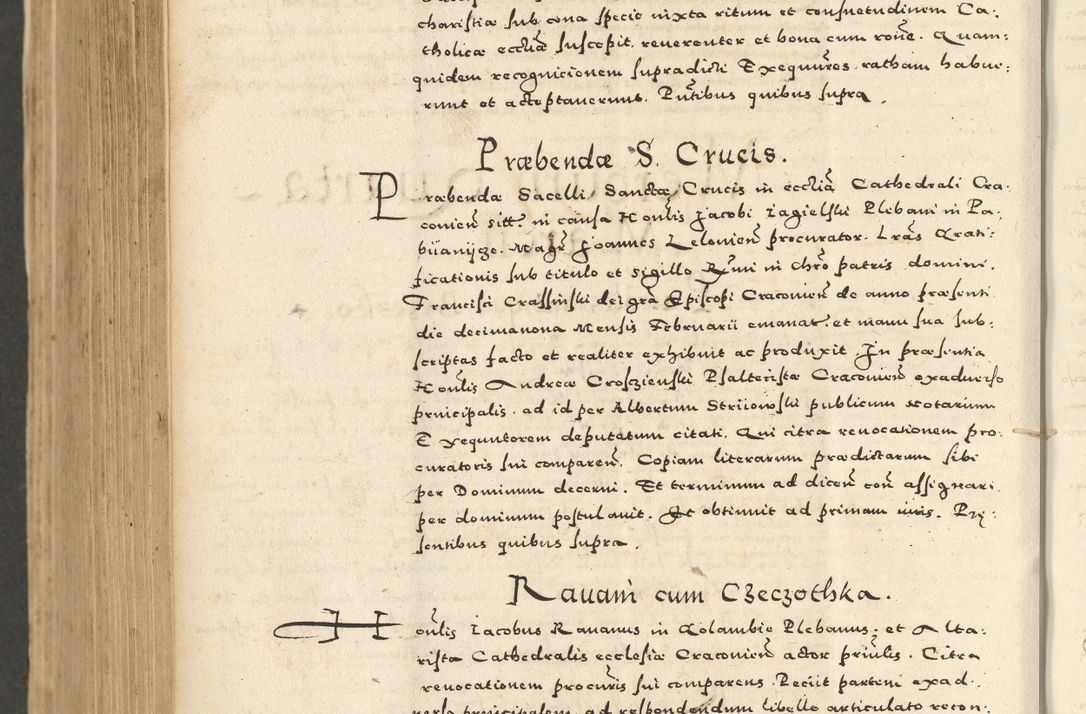 charistiæ sub vna specie iuxta ritum et consuetudinem Ca:
tholicæ eccliæ suscepit reuerenter et bona cum rone. Quam:
quidem recognicionem supradicti Exequutores ratham habue:
runt et acceptauerunt. Pntibus quibus supra.
Præbendæ S. Crucis.
Præbendæ Sacelli Sanctæ Crucis in eccliā Cathedrali Cra:
conien sitt. in causa Honlis Jacobi Iagielski Plebani in Pa:
biianijcze. Magr Joannes Lelonien procurator. Lras Grati:
ficationis sub titulo et sigillo Rmi in chro patris domini.
Francisci Crassinski dei gra Episcopi Craconien de anno præsenti
die decimanona Mensis Februarii emanat. et manu sua sub:
scriptas facto et realiter exhibuit ac produxit In præsentia
Honlis Andreæ Crosczienski Psalteristæ Craconien exaduerso
principalis. ad id per Albertum Striiowski publicum notarium
Exequutorem deputatum citati. Qui citra reuocationem pro:
curatoris sui comparen. Copiam literarum prædictarum sibi
per Dominum decerni. Et terminum ad dicen con assignari
per dominum postulauit. Et obtinuit ad primam iuris. Præ:
sentibus quibus supra.
Rauani cum Czeczothka.
Honlis Iacobus Rauanus in Golambie Plebanus. et Alta:
rista Cathedralis ecclesiæ Craconien actor prinlis. Citra
reuocationem procuris sui comparens. Peciit partem exad:
verso principalem. ad respondendum libello articulato recon: